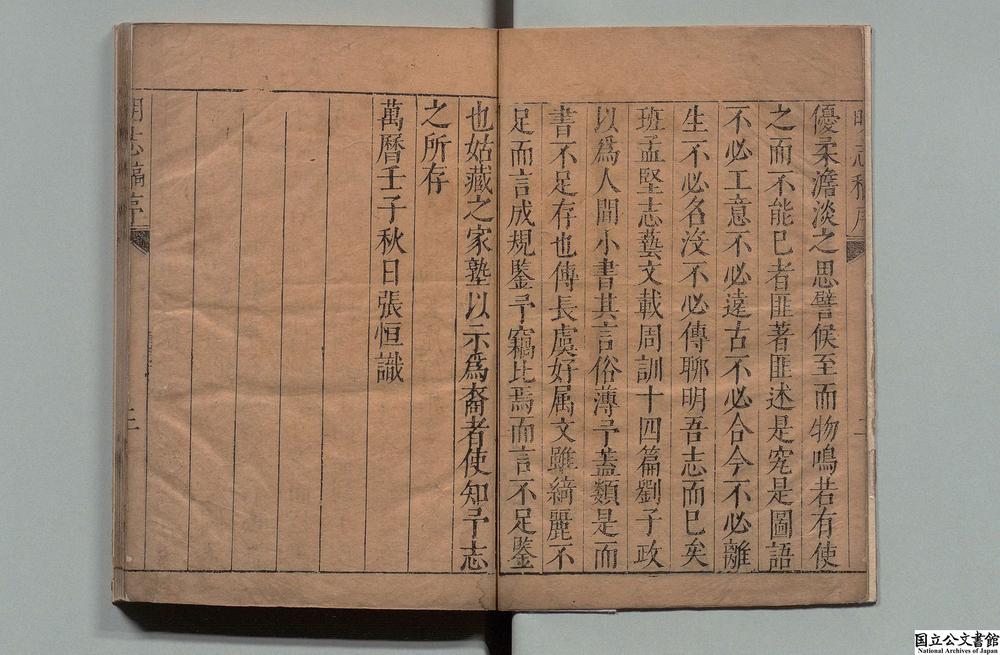 明志稿序
二
優柔澹淡之思譬候至而物鳴若有使
之而不能已者匪著匪述是究是圖語
不必工意不必遠古不必合今不必離
生不必名沒不必傳聊明吾志而已矣
班孟堅志藝文載周訓十四篇劉子政
以為人間小書其言俗薄予蓋類是而
書不足存也傳長虞好属文雖綺麗不
足而言成規鑒予竊比焉而言不足鑒
也姑藏之家塾以示為裔者使知予志
之所存
萬曆壬子秋日張恒識
明志稿序
國立公文書館
National Archives of Japan